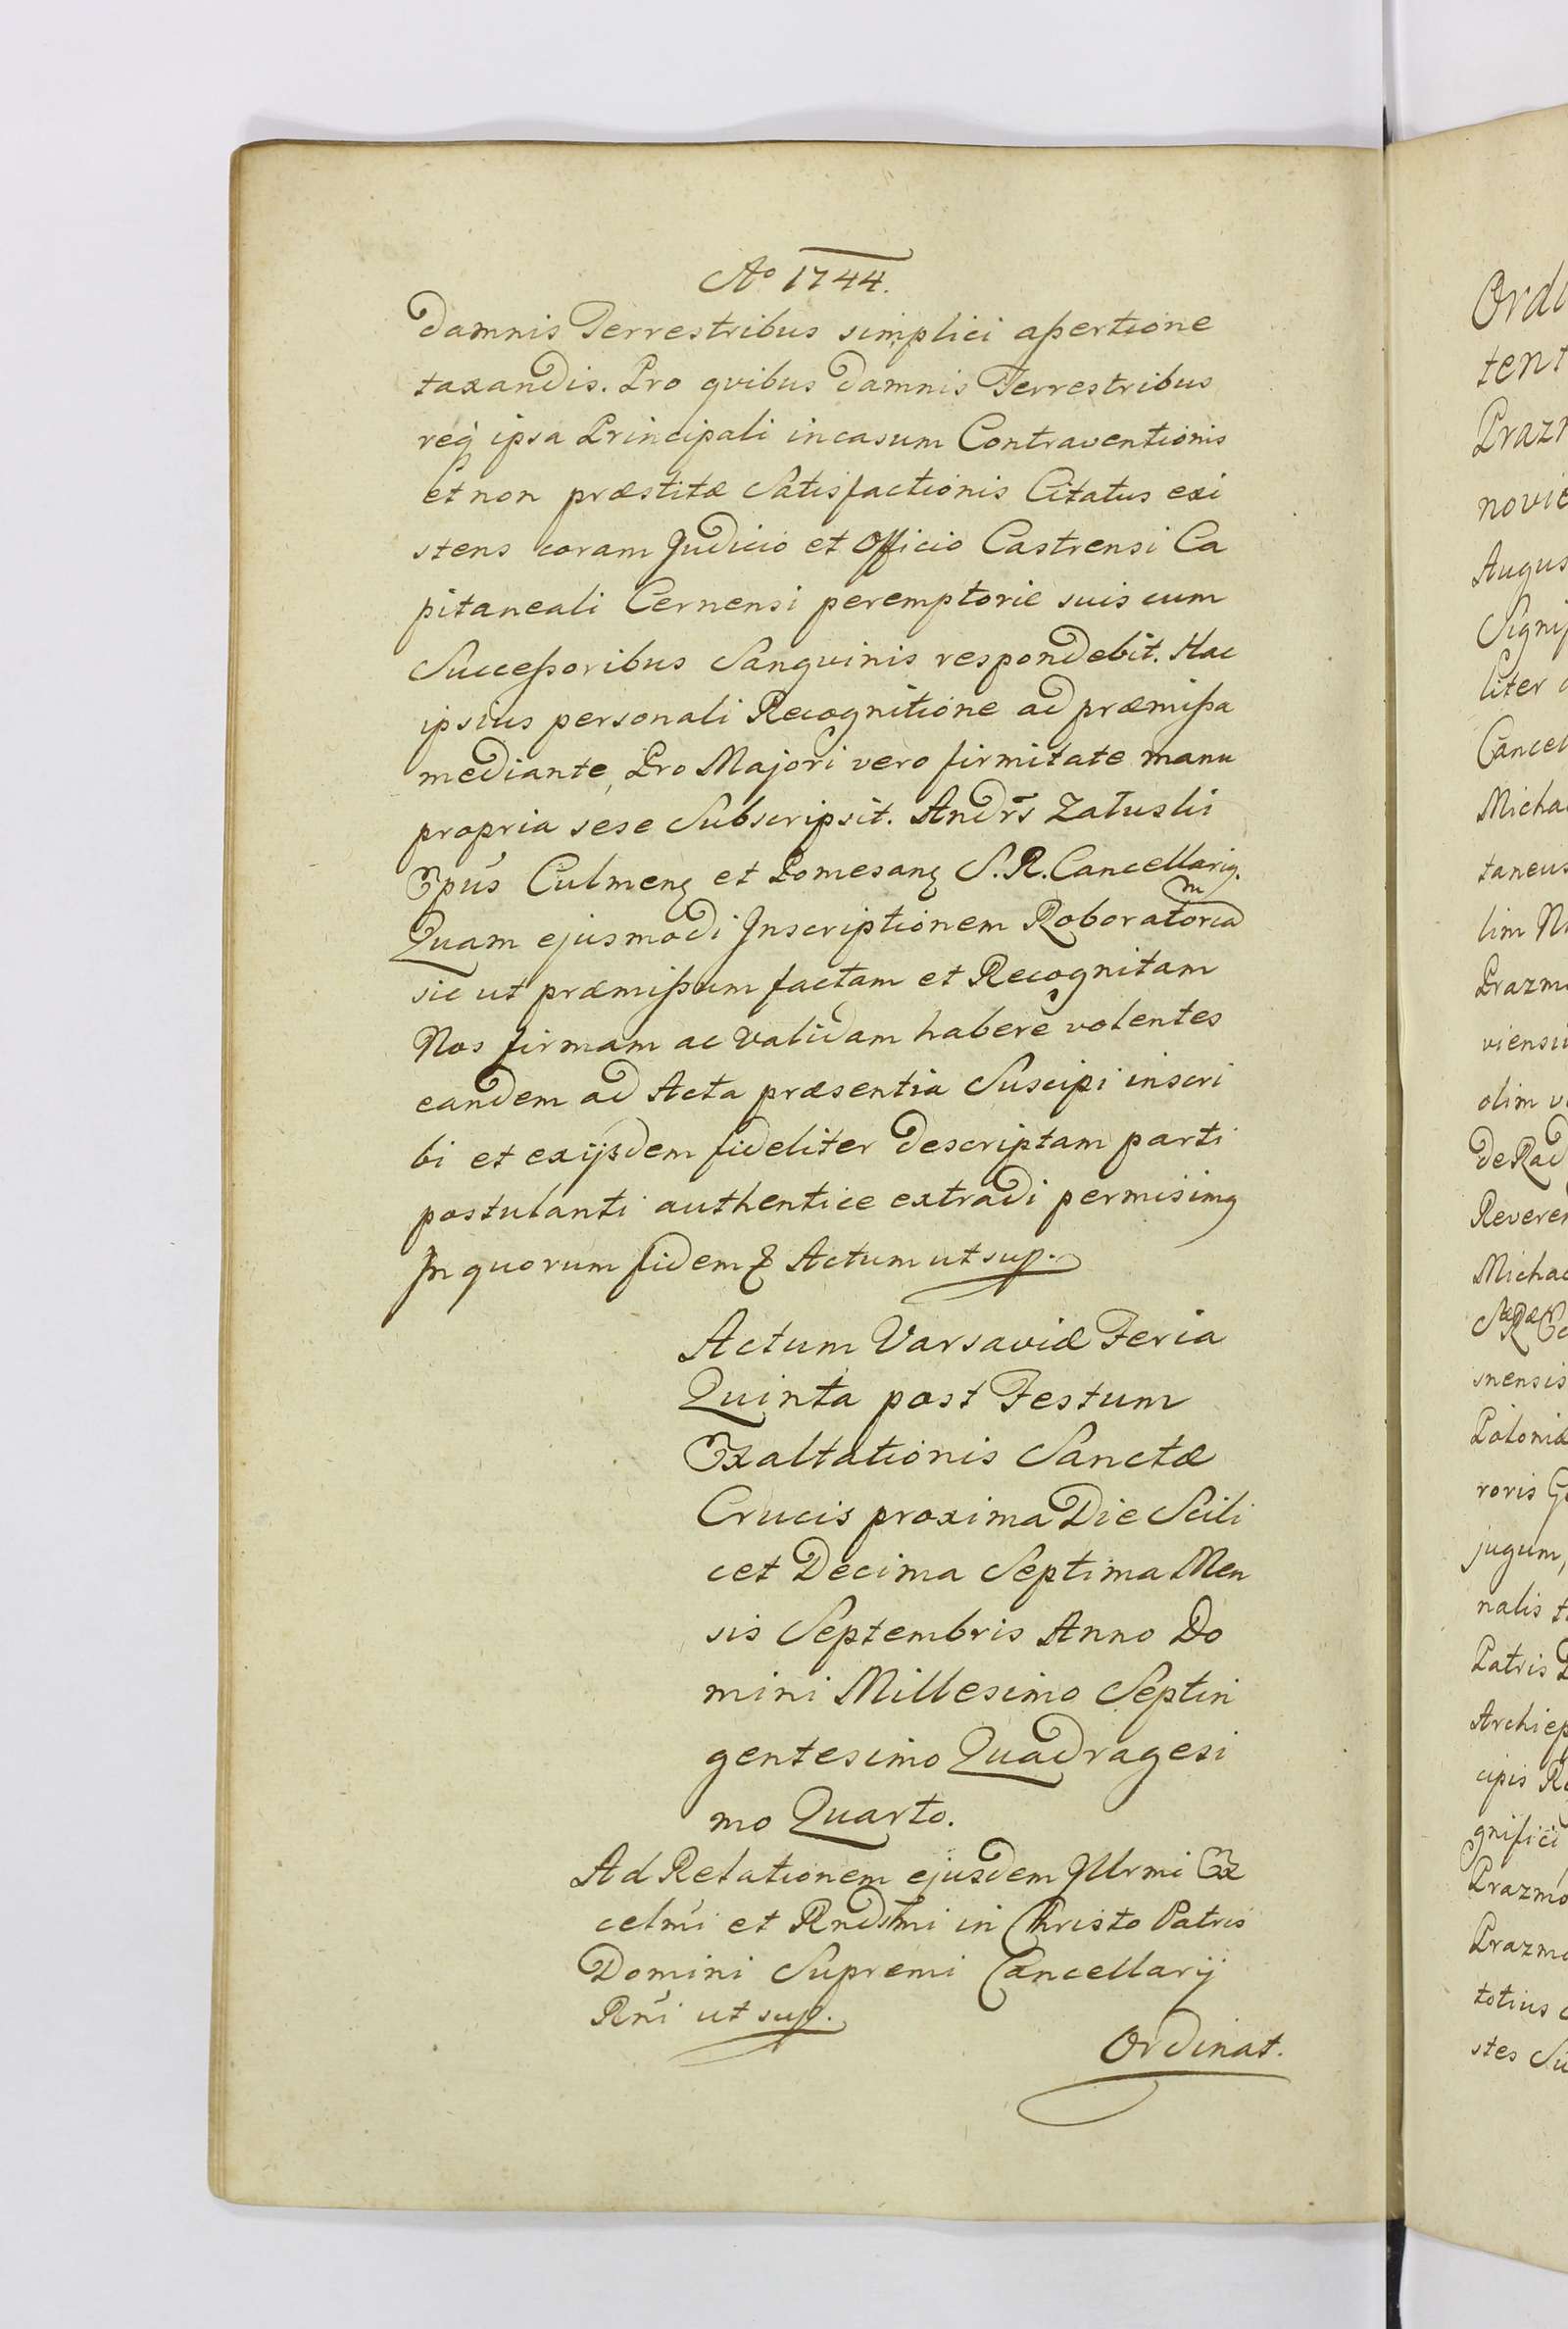 Aº 1744.
damnis Terrestribus simplici aßertione
taxandis. Pro qvibus damnis Terrestribus
req ipsa Principali in casum Contraventionis
et non præstitæ Satisfactionis Citatus exi
stens coram Judicio et Officio Castrensi Ca
pitaneali Cernensi peremptorie suis cum
Succeßoribus Sanguinis respondebit. Hac
ipsius personali Recognitione ad præmißa
mediante, Pro Majori vero firmitate manu
propria sese Subscripsit. Andrs Załuski
Epús Culmens et Pomesans S. R. Cancellarig.
Quam ejusmodi Inscriptionem Roboratoriam
sic ut præmißum factam et Recognitam
Nos firmam ac validam habere volentes
eandem ad Acta præsentia Suscipi inscri
bi et exijsdem fideliter descriptam parti
postulanti authentice extradi permisimg
In quorum fidem & Actum ut sup.
Actum Varsaviæ Feria
Quinta post Festum
Exaltationis Sanctæ
Crucis proxima Die Scili
cet Decima Septima Men
sis Septembris Anno Do
mini Millesimo Septin
gentesimo Quadragesi
mo Quarto.
Ad Relationem ejusdem Illrmi Ex
celmi et Rndsmi in Christo Patris
Domini Supremi Cancellarij
Rni ut sup.
Ordinat.
tent
Prazm
novic
Augus
Signif
liter
Cancel
Micha
taneus
lim
Prazm
viensi
olim
de Rad
Rever
Michae
snensis
Poloniæ
roris
jugum,
nalis
Patris
Archiep
cipis
gnifici
Prazmo
Prazmo
totius
stes Su